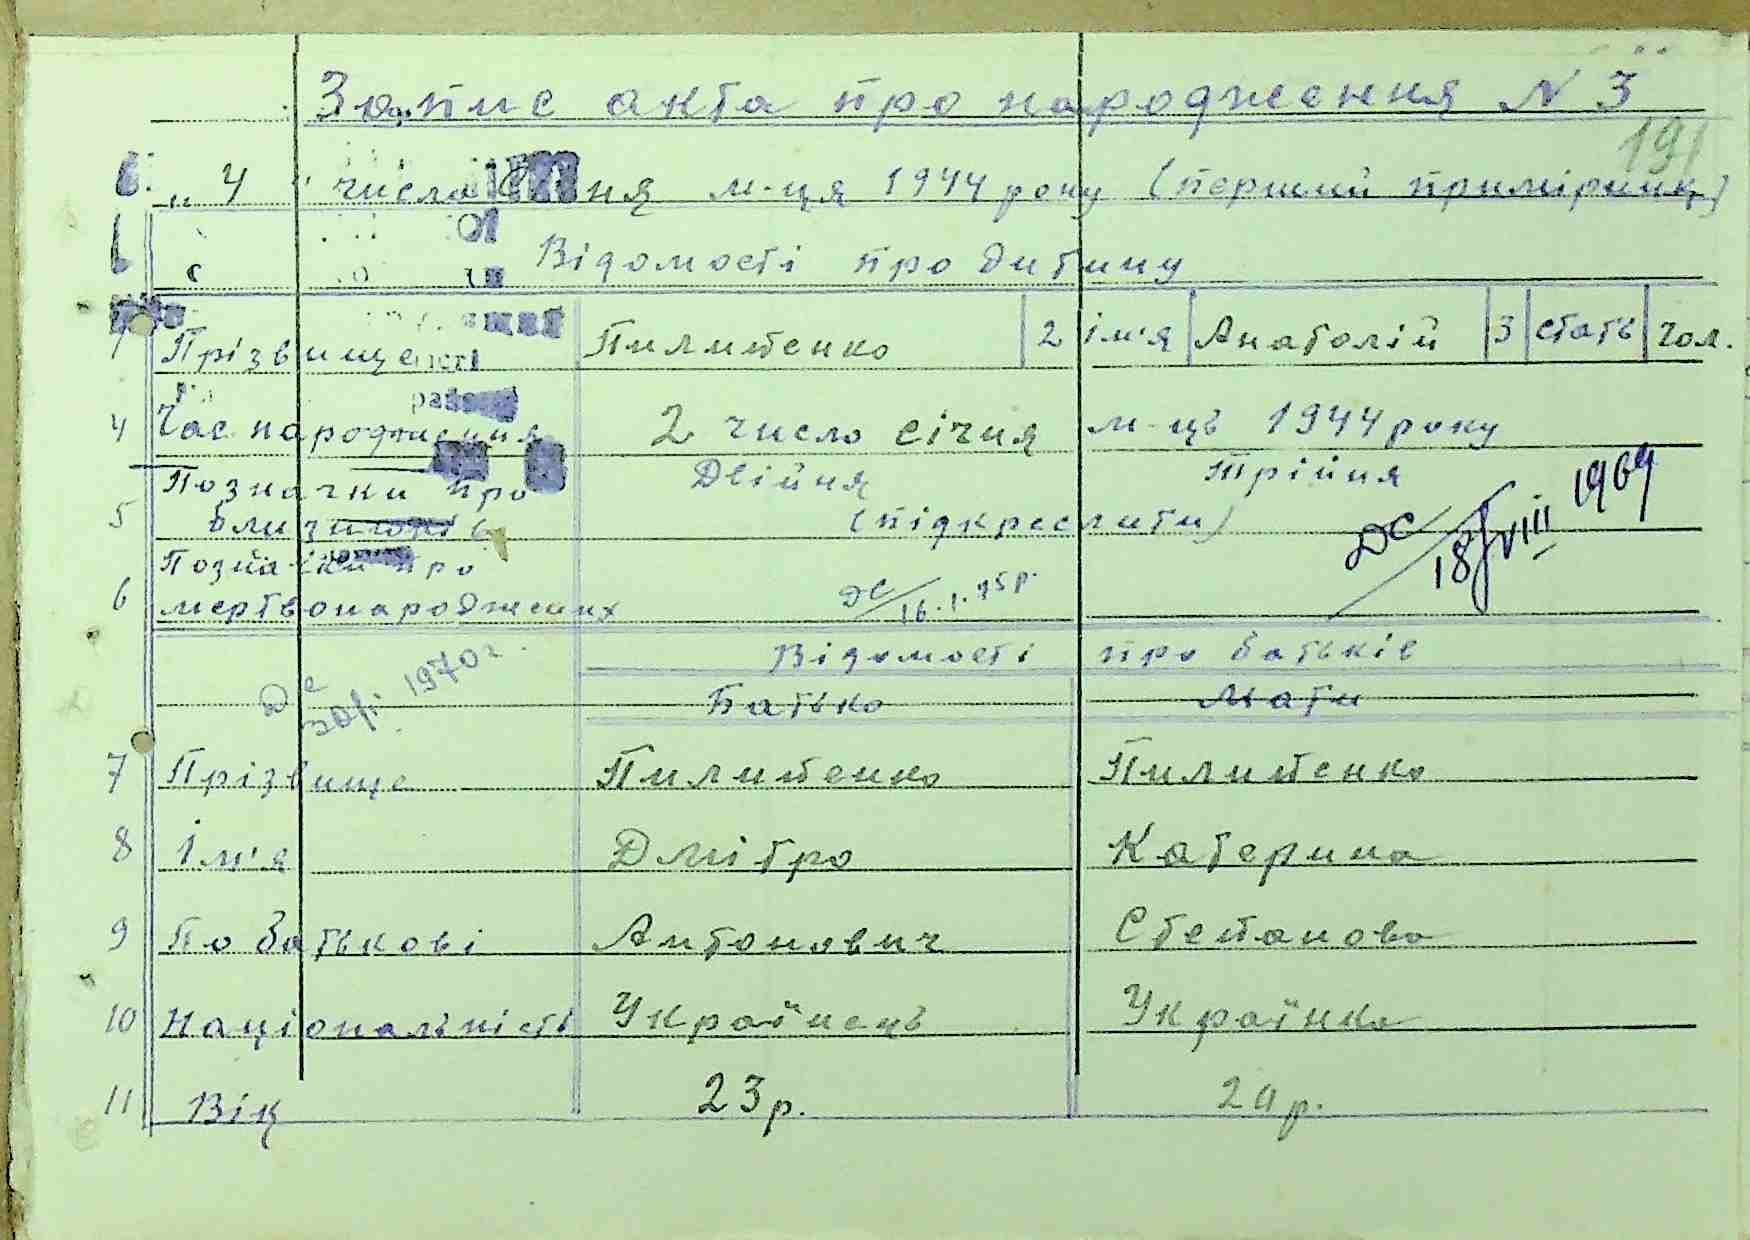 Запис акта про народження N 3
191
„ 4 " числа січня м-ця 1944 року (перший примірник)
Відомості про дитину
1 Прізвище Пилипенко 2 ім'я Анатолій 3 стать чол.
4 Час народження 2 число січня м-ць 1944 року
5 Позначки про близнюків Двійня Трійня
(підкреслити)
ДС 18/VIII 1969
6 Позначки про мертвонароджених ДС 16.1.95р.
ДС 1970г.
Відомості про батьків
Батько Мати
7 Прізвище Пилипенко Пилипенко
8 Ім'я Дмітро Катерина
9 По батькові Антонович Степанова
10 Національність Українець Українка
11 Вік 23р. 20р.